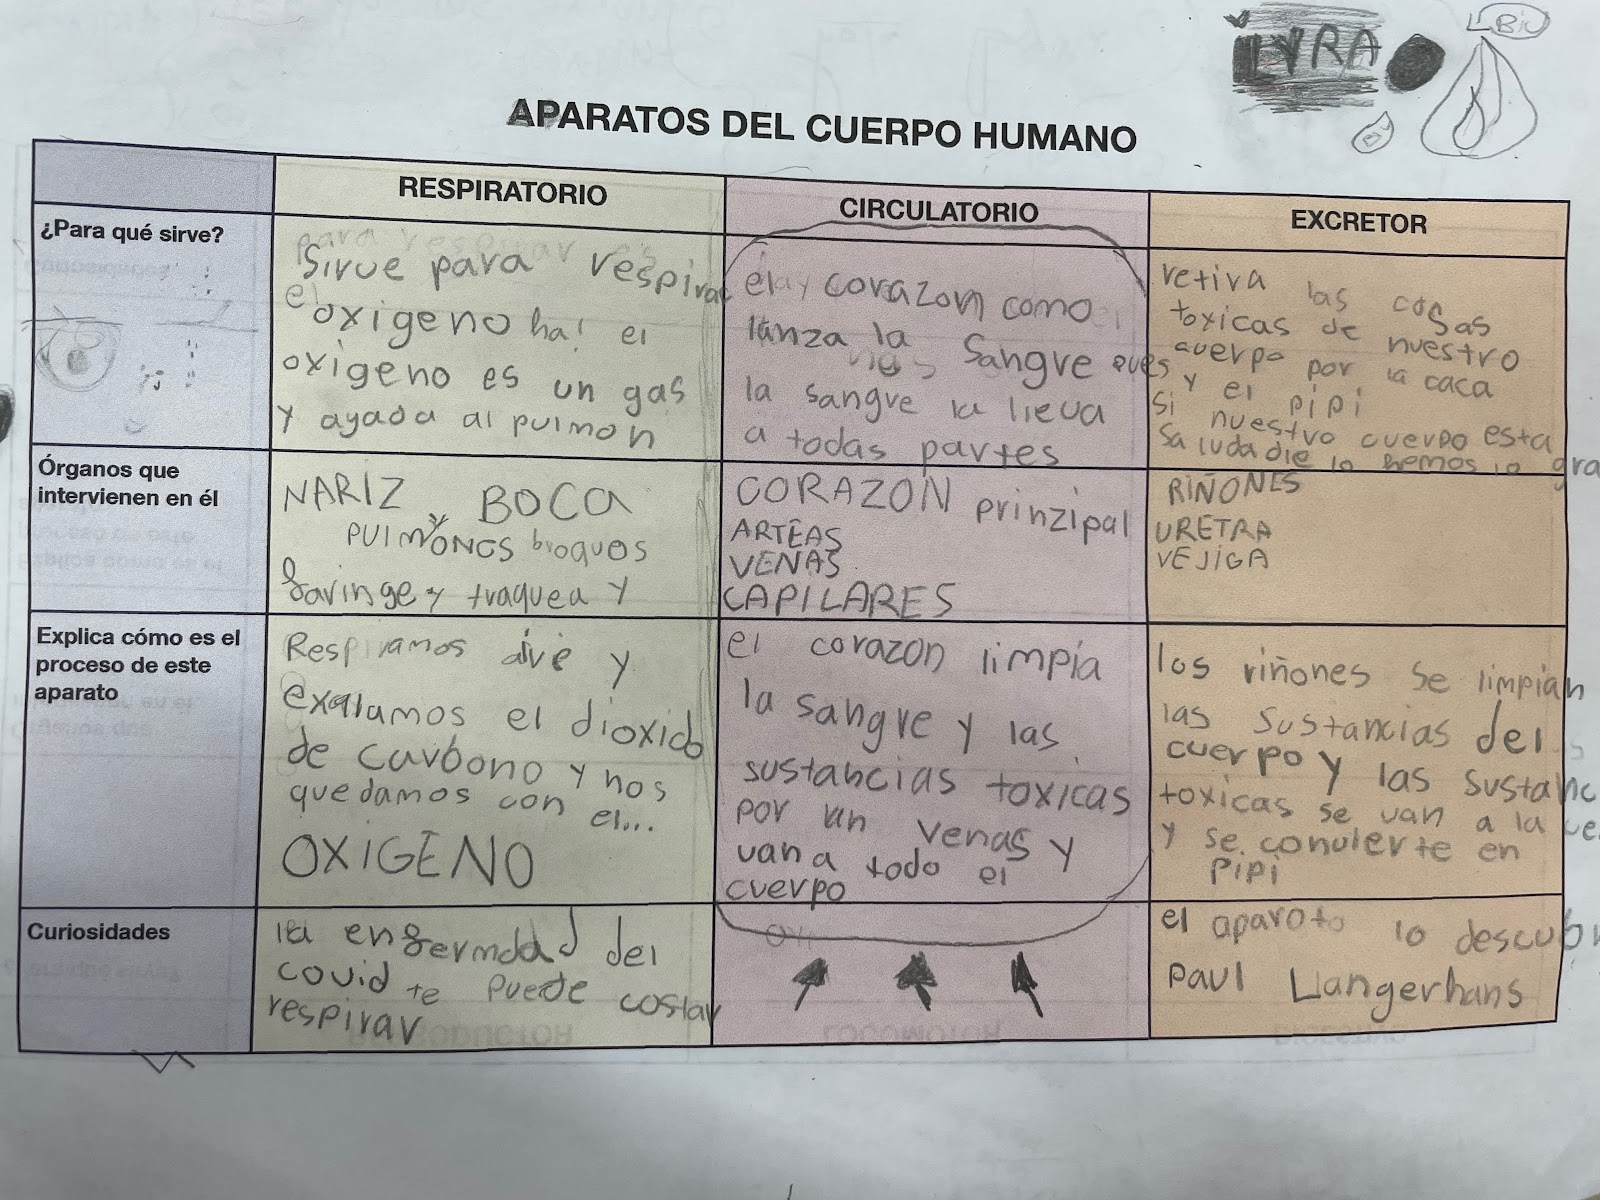 LYRA
APARATOS DEL CUERPO HUMANO
RESPIRATORIO
CIRCULATORIO
EXCRETOR
¿Para qué sirve?
Sirve para respirar
el oxigeno ha! el
oxigeno es un gas
y ayada al pulmon
el corazon como
lanza la sangre pues
la sangre la lleva
a todas partes
retira las cosas
toxicas de nuestro
cuerpo por la caca
y el pipi
si nuestro cuerpo esta
Órganos que
intervienen en él
NARIZ y BOCA
PUlMONES broquos
faringe y traquea y
CORAZON prinzipal
ARTEAS
VENAS
CAPILARES
RIÑONES
URETRA
VEJIGA
Explica cómo es el
proceso de este
aparato
Respiramos aire y
exalamos el dioxido
de carbono y nos
quedamos con el...
OXIGENO
el corazon limpia
la sangre y las
sustancias toxicas
por un venas y
van a todo el
cuerpo
los riñones se limpian
las sustancias del
cuerpo y las sustanc
toxicas se van a la ve
y se convierte en
pipi
Curiosidades
la enfermdad del
covid te puede costar
respirar
el aparato lo descubr
paul Llangerhans